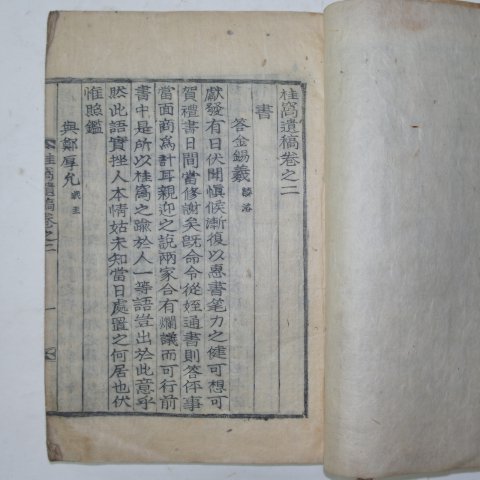 桂窩遺稿卷之二
書
答金錫羲
獻發有日伏聞愼候漸復以惠書筆力之健可想可
賀禮書日間當修謝矣旣命令從姪通書則答伻事
當面商爲計耳親迎之說兩家合有爛議而可行前
書中是所以桂窩之踰於人一等語豈出於此意乎
然此語實挫人本情姑未知當日處置之何居也伏
惟照鑑
與鄭厚允
桂窩遺稿卷之二
一